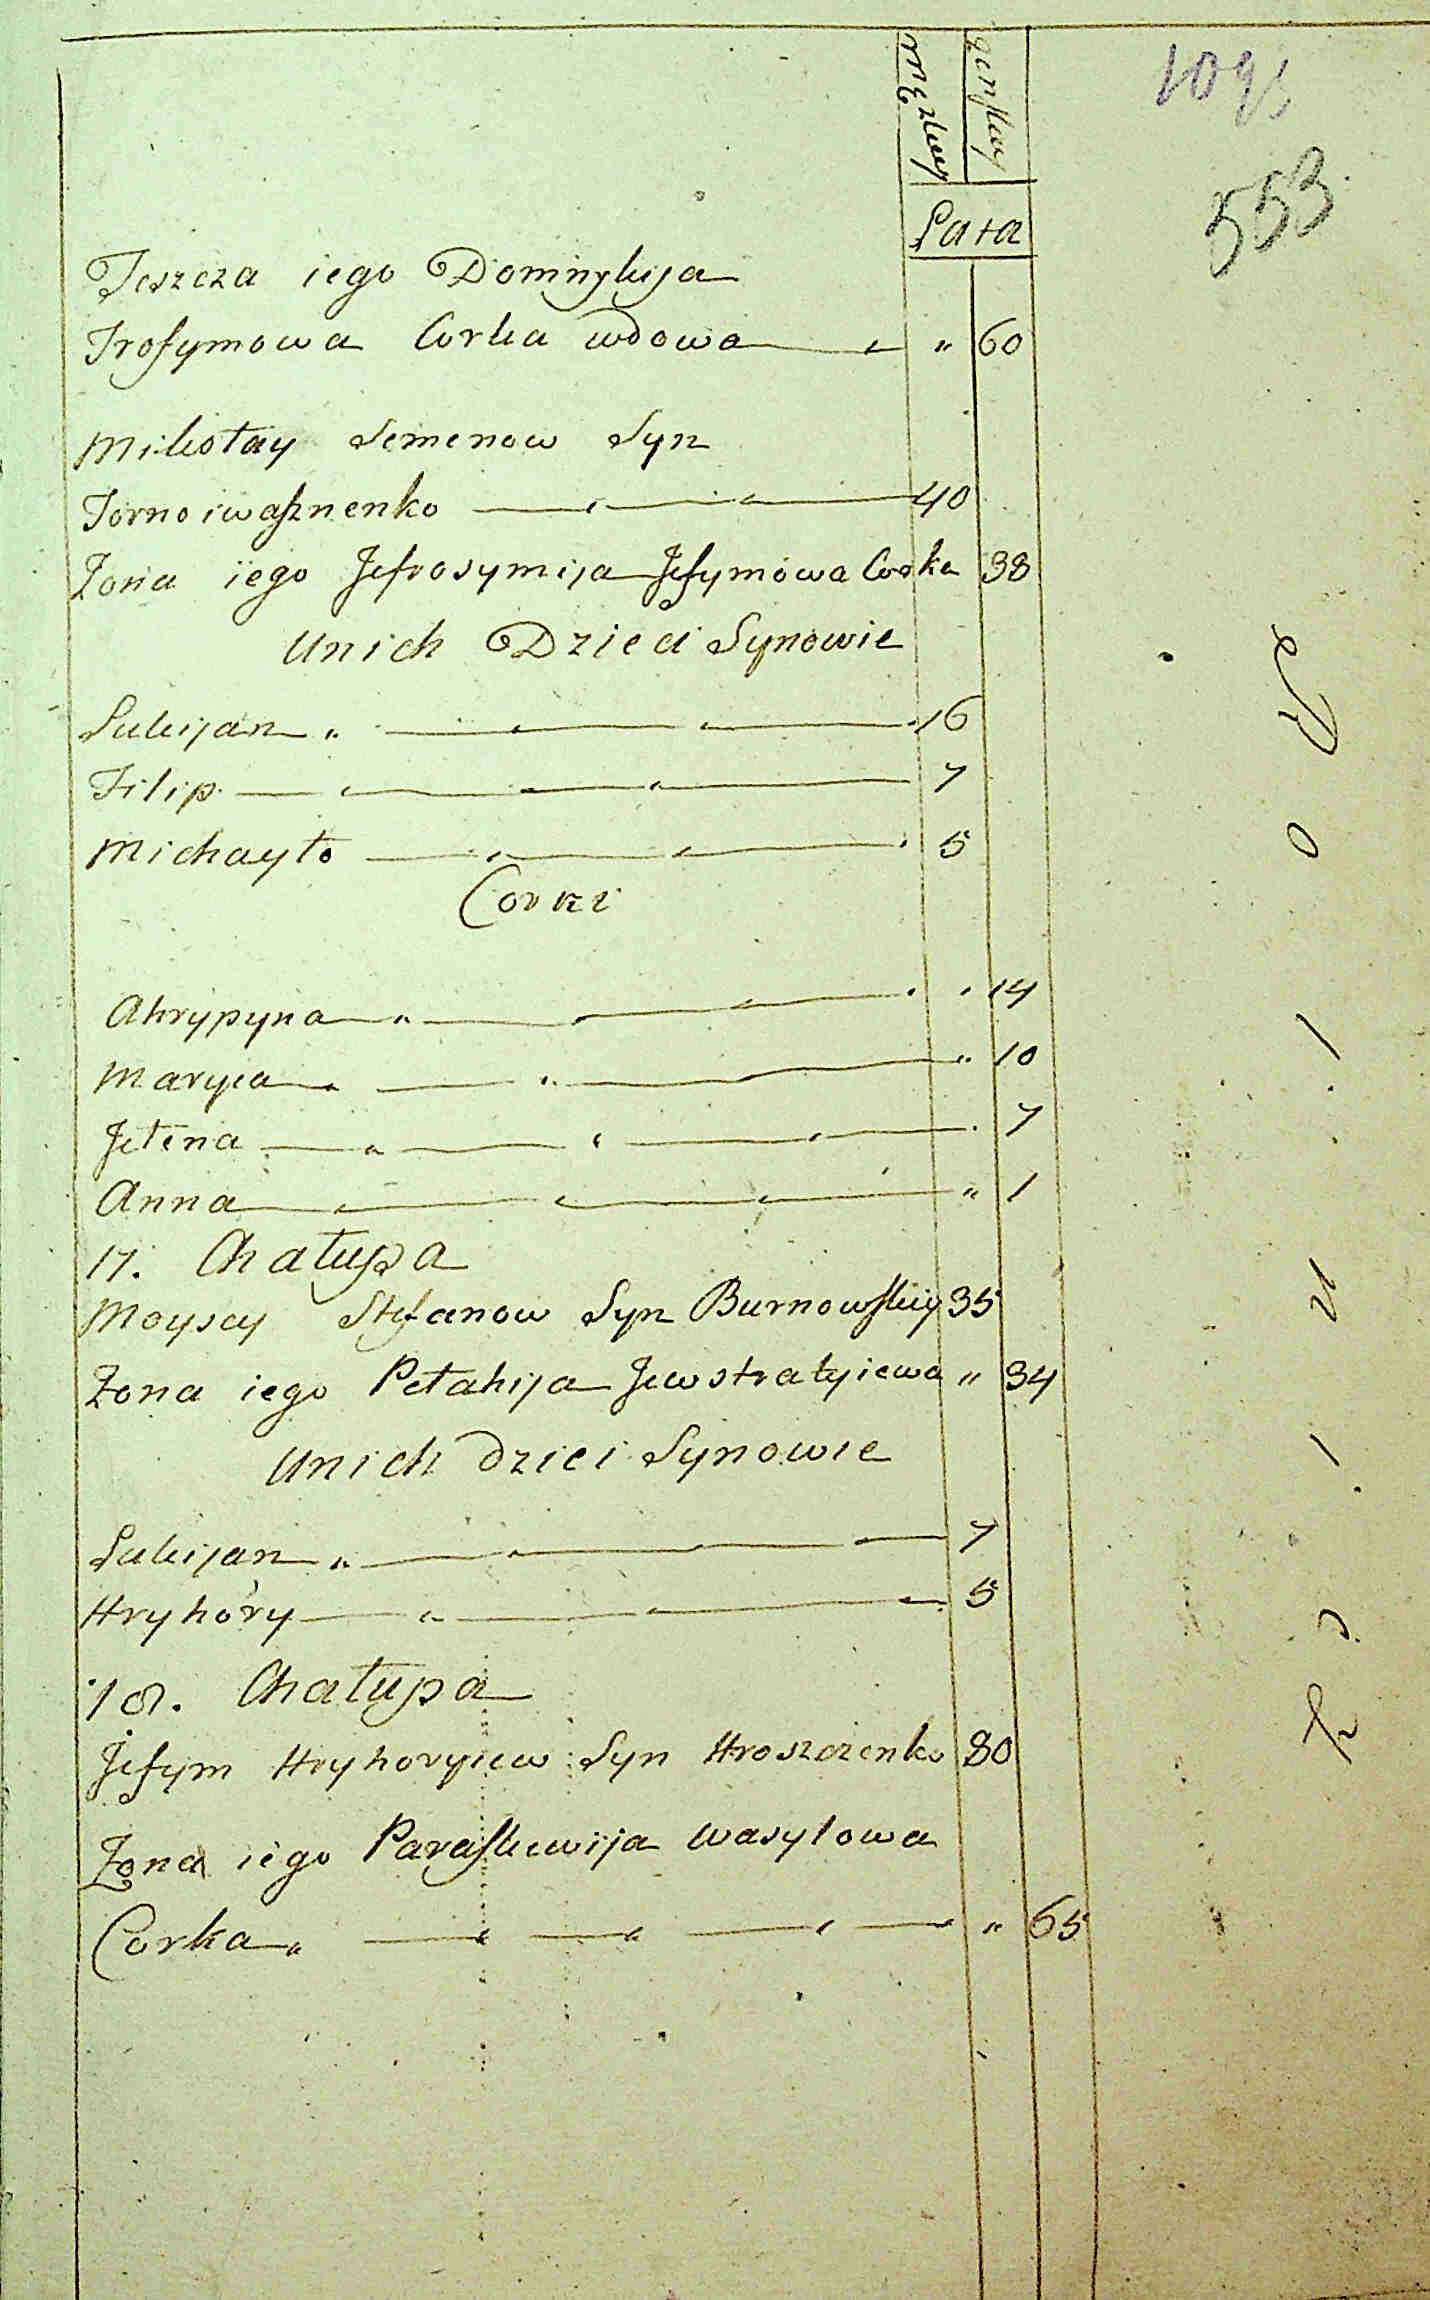 męzkiey żenskiey
1091
553
Lata
Teszcza iego Dominykija
Trofymowa Corka wdowa " 60
Mikołay Semenow Syn
Tornoiwasznenko 40
Zona iego Jefrosymija Jefymowa Corka 38
Unich Dzieci Synowie
Lukijan 16
Filip 7
Michayło 5
Corki
Ahrypyna 14
Maryia " 10
Jełena 7
Anna " 1
17. Chałupa
Moysey Stefanow Syn Burnowskiy 35
Zona iego Pełahija Jewstratyiewa " 34
Unich dzieci Synowie
Lukijan 7
Hryhory 5
18. Chałupa
Jefym Hryhoryiew Syn Hroszczenko 80
Zona iego Paraskewija Wasylowa
Corka " 65